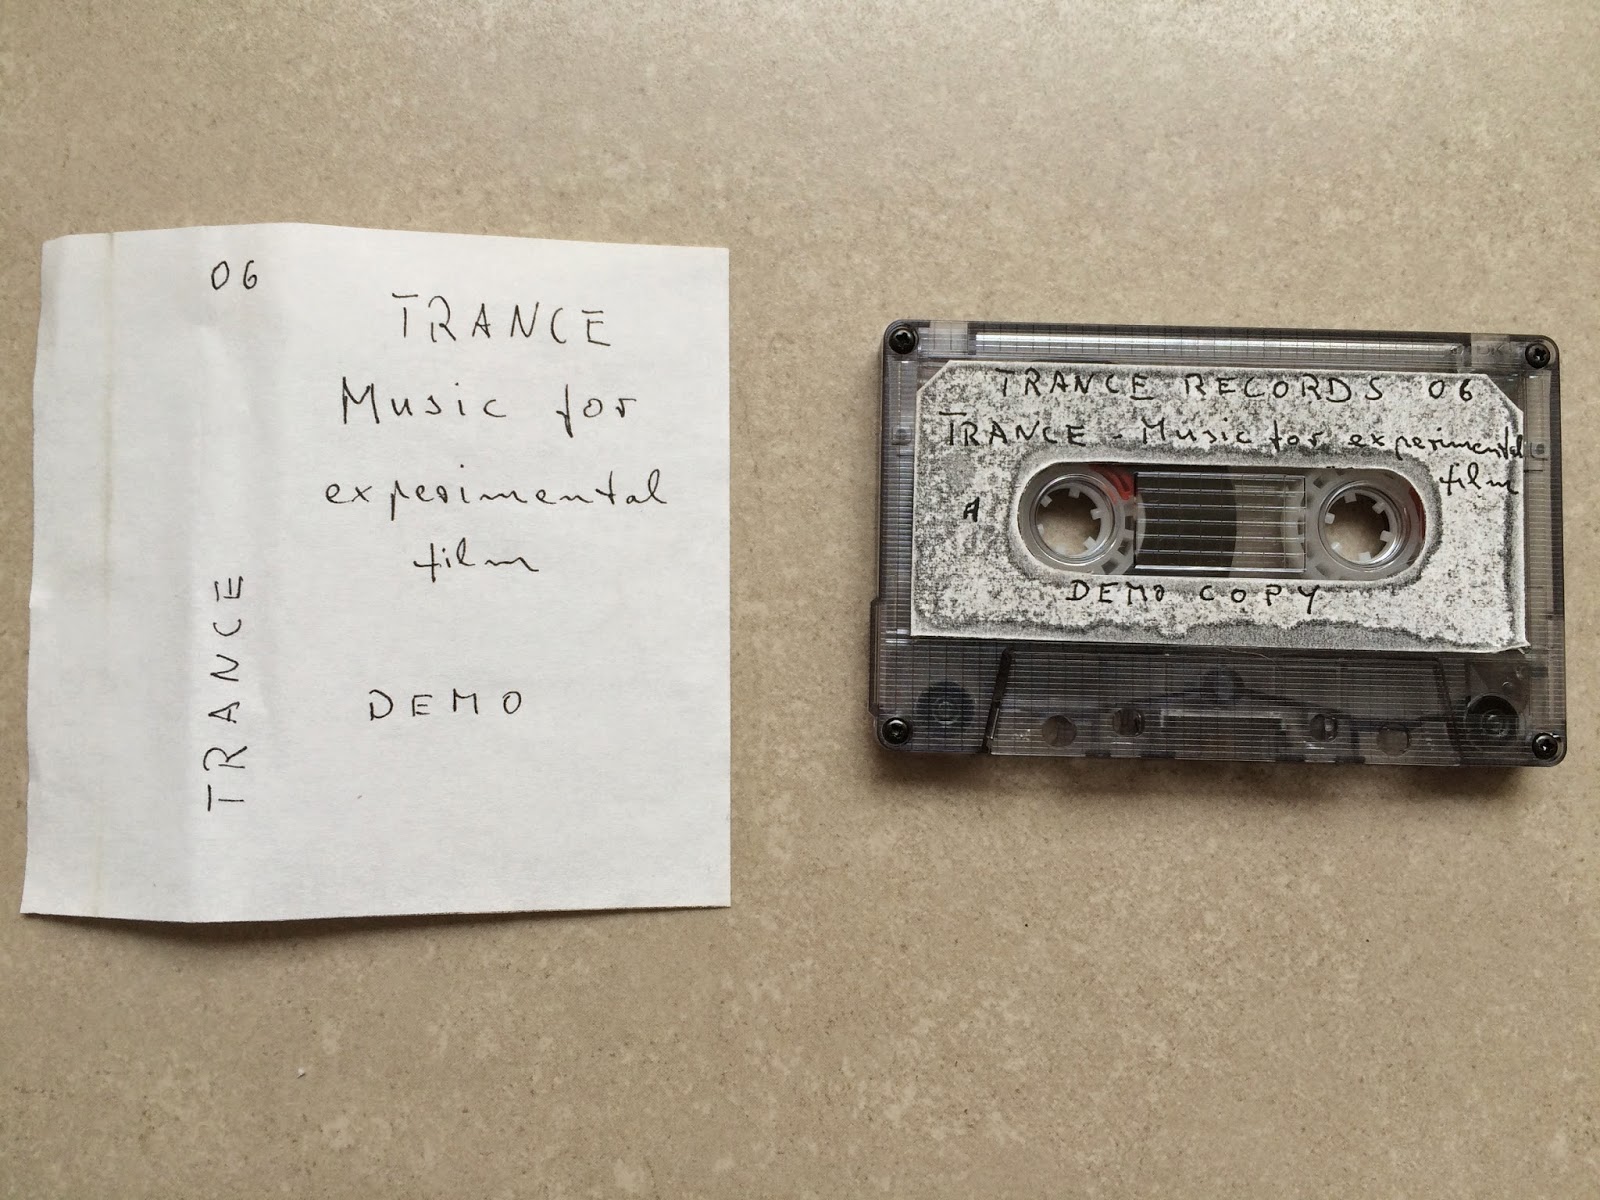 06
TRANCE
TRANCE
Music for
experimental
film
DEMO
TRANCE RECORDS 06
TRANCE - Music for experimental
film
A
DEMO COPY